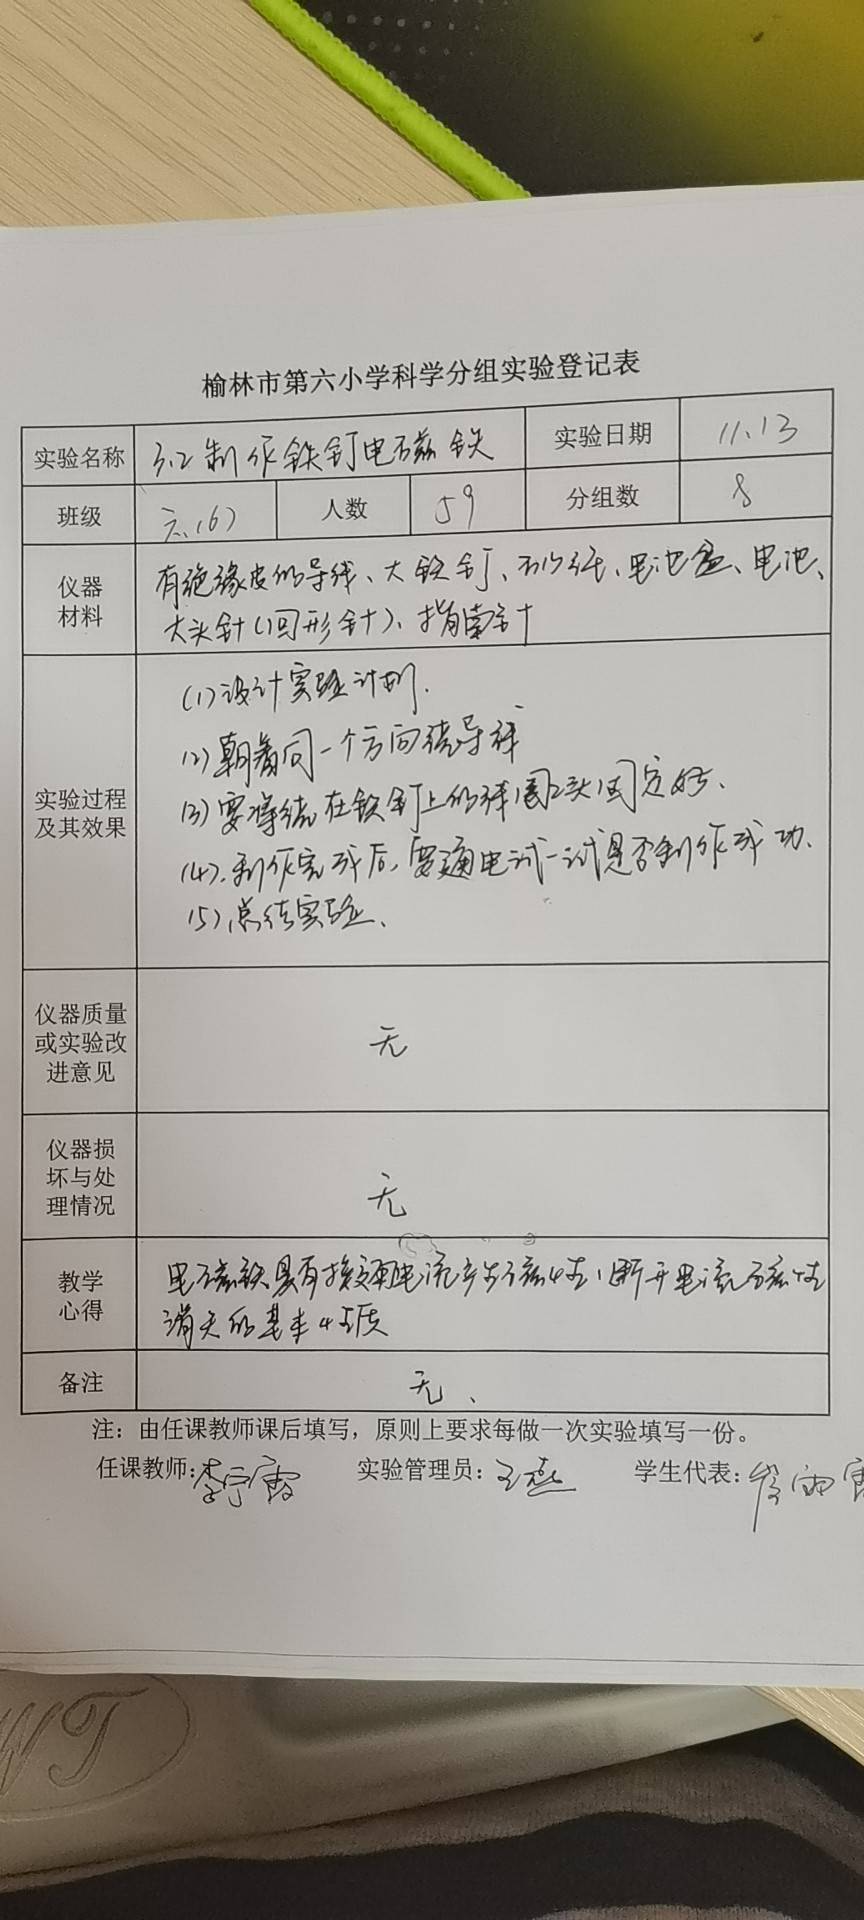 榆林市第六小学科学分组实验登记表
实验名称 3.2制作铁钉电磁铁 实验日期 11.13
班级 六(6) 人数 59 分组数 8
仪器材料 有绝缘皮的导线、大铁钉、砂纸、电池盒、电池、
大头针(回形针)、指南针
实验过程及其效果
(1)设计实验计划.
(2)朝着同一个方向绕导线
(3)要将绕在铁钉上的线圈2头固定好、
(4).制作完成后,要通电试一试是否制作成功.
(5)总结实验、
仪器质量或实验改进意见 无
仪器损坏与处理情况 无
教学心得 电磁铁具有接通电流产生磁性,断开电流磁性
消失的基本性质
备注 无、
注：由任课教师课后填写，原则上要求每做一次实验填写一份。
任课教师:李宁霞 实验管理员:王燕 学生代表:
WT